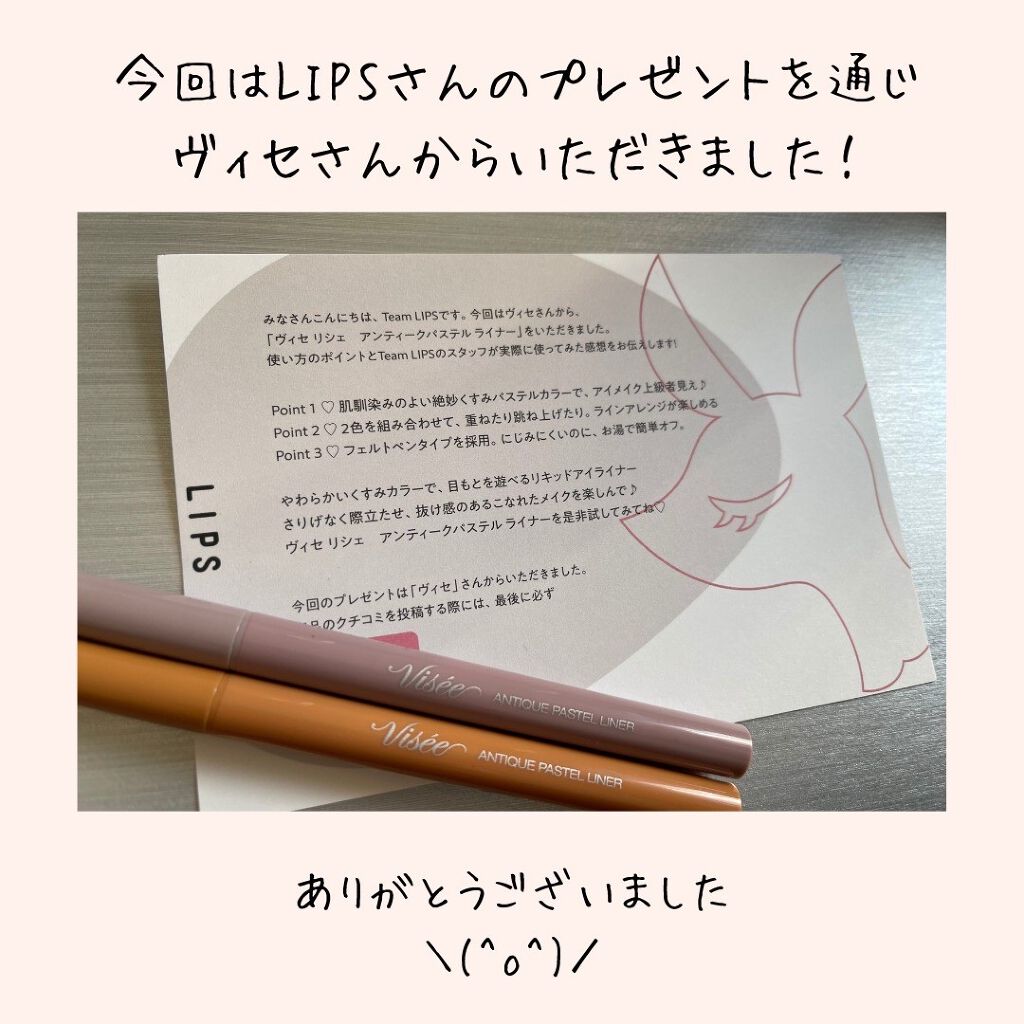 今回はLIPSさんのプレゼントを通じ
ヴィセさんからいただきました！
みなさんこんにちは、Team LIPSです。今回はヴィセさんから、
「ヴィセ リシェ　アンティークパステル ライナー」をいただきました。
使い方のポイントとTeam LIPSのスタッフが実際に使ってみた感想をお伝えします!
Point 1 ♡ 肌馴染みのよい絶妙くすみパステルカラーで、アイメイク上級者見え♪
Point 2 ♡ 2色を組み合わせて、重ねたり跳ね上げたり。ラインアレンジが楽しめる
Point 3 ♡ フェルトペンタイプを採用。にじみにくいのに、お湯で簡単オフ。
やわらかいくすみカラーで、目もとを遊べるリキッドアイライナー
さりげなく際立たせ、抜け感のあるこなれたメイクを楽しんで♪
ヴィセ リシェ　アンティークパステル ライナーを是非試してみてね♡
LIPS
今回のプレゼントは「ヴィセ」さんからいただきました。
のクチコミを投稿する際には、最後に必ず
Visée ANTIQUE PASTEL LINER
Visée ANTIQUE PASTEL LINER
ありがとうございました
\(^o^)/